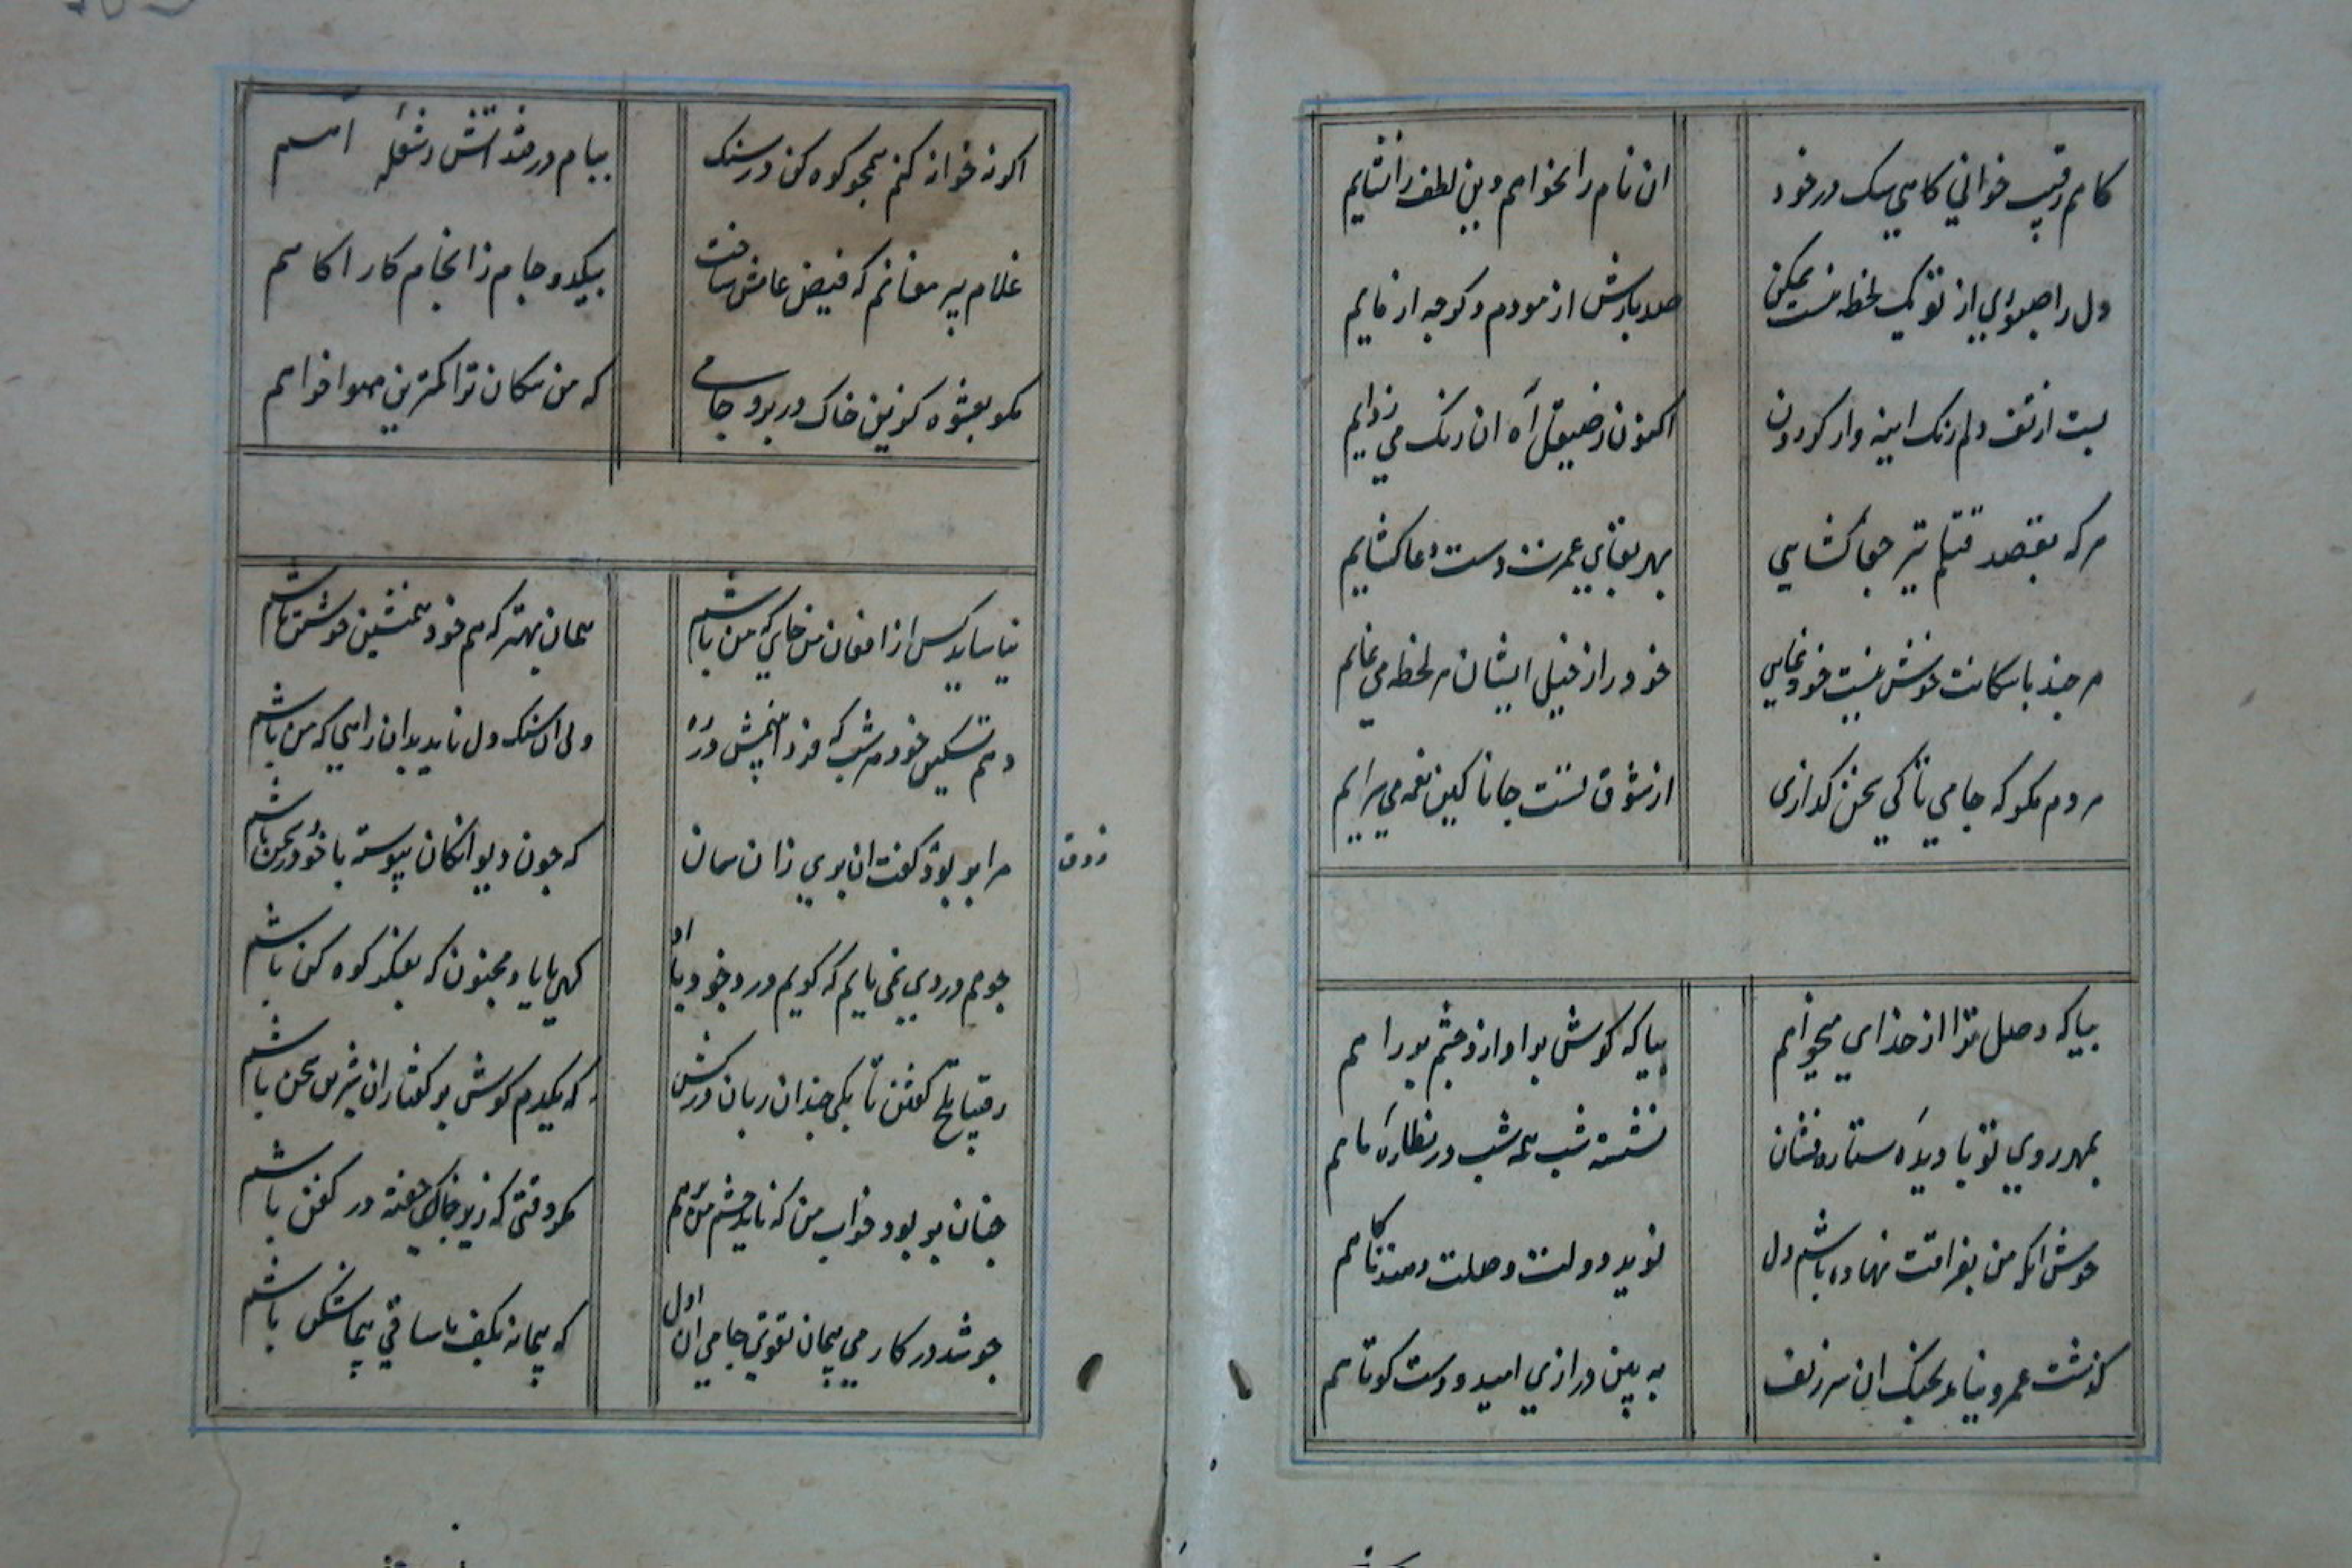 کاهم رقیب خوانی کاهی سک در خود
ان نام را نخواهم وین لطف را نشایم
دل را صبوری از تو یک لحظه نیست ممکن
صد بارش ازمودم دکر چه ازمایم
بست از تف دلم زنک اینه وار کردون
اکنون ز صیقل آه ان زنک می زدایم
هر که بقصد قتلم تیر جفا کشایی
بهر بقای عمرت دست دعا کشایم
هر چند با سکانت خوش نیست خود نمایی
خود را ز خیل ایشان هر لحظه می نمایم
هر دم مکو که جامی تا کی سخن کذاری
از شوق تست جانا کین نغمه می سرایم
بیا که وصل ترا از خدای میخواهم
بیا که کوش بر اواز و چشم بر راهم
بمهر روی تو با دیده ستاره فشان
نشسته شب همه شب در نظاره ماهم
خوش انکه من بفراقت نهاده باشم دل
نوید دولت وصلت دهند ناکاهم
کذشت عمر و نیامد بچنک ان سر زلف
به بین درازی امید و دست کوتاهم
اکر نه خواند کنم همچو کوه کن در سنک
بیام در فتد اتش ز شعله اهم
غلام پیر مغانم که فیض عامش ساخت
بیکدو جام ز انجام کار اکاهم
مکو بعشوه کزین خاک در برو جامی
که من سکان ترا کمترین هوا خواهم
نیاساید کس از افغان من جایی که من باشم
همان بهتر که هم خود همنشین خویشتن باشم
دهم تسکین خود هر شب که فردا بینمش در ره
ولی ان سنک دل ناید بدان راهی که من باشم
مرا بر بود کفت ان پری زان سان
ذوق
که چون دیوانکان پیوسته با خود در سخن باشم
چو هم دردی نمی یابم که کویم درد خود با او
کهی با یاد مجنون که بفکر کوه کن باشم
رقیبا تلخ کفتن تا بکی چندان زبان درکش
که یکدم کوش بر کفتار ان شیرین سخن باشم
چنان بر بود خواب من که ناید چشم من بر هم
مکر وقتی که زیر خاک خفته در کفن باشم
چو شد در کار می پیمان تقوی جامی ان اول
که پیمانه بکف با ساقی پیمان شکن باشم